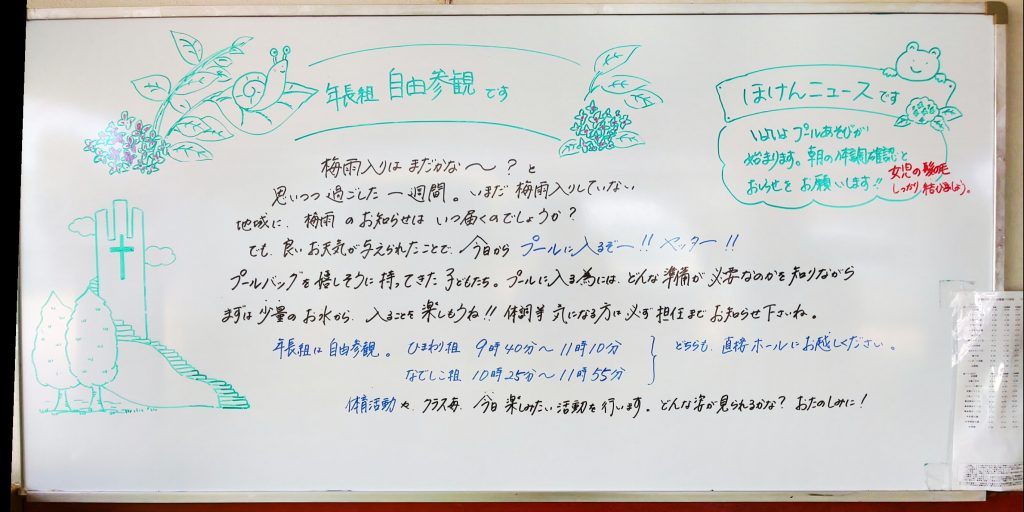 年長組 自由参観です
ほけんニュースです
いよいよプールあそびが
始まります。朝の体調確認と
おしらせをお願いします!!
女児の髪の毛
しっかり結びましょう。
梅雨入りは まだかな〜?と
思いつつ過ごした一週間。いまだ梅雨入りしていない
地域に、梅雨のお知らせは いつ届くのでしょうか?
でも、良いお天気が与えられたことで、今日から プールに入るぞー!! ヤッター!!
プールバッグを嬉しそうに持ってきた子どもたち。プールに入る為には、どんな準備が必要なのかを知りながら
まずは少量のお水から、入ることを楽しもうね!! 体調等 気になる方は必ず担任までお知らせ下さいね。
年長組は自由参観。 ひまわり組 9時40分〜11時10分
なでしこ組 10時25分〜11時55分
どちらも、直接ホールにお越しください。
体育活動や、クラス毎、今日楽しみたい活動を行います。どんな姿が見られるかな? おたのしみに!